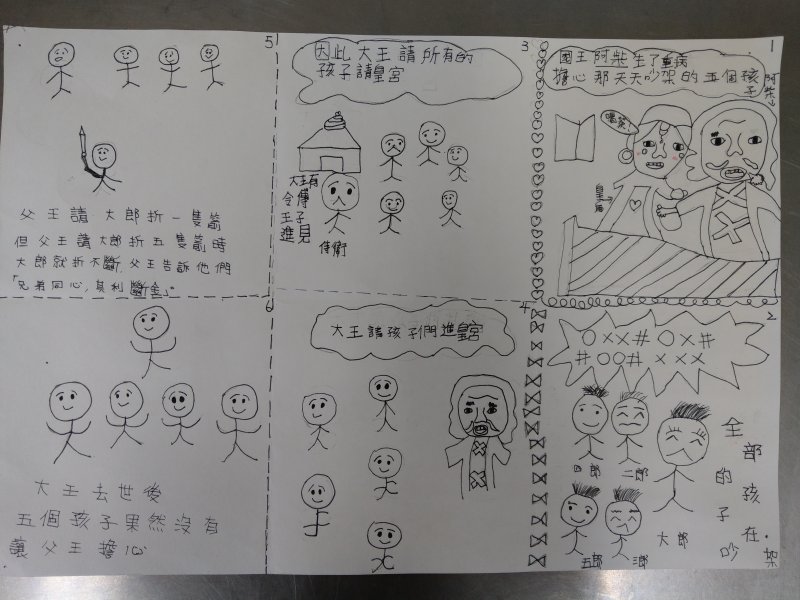 1
國王阿柴生了重病
擔心那天天吵架的五個孩子
阿柴
喂藥
皇后
2
OXX#OX#
#OO#XXX
四郎
二郎
大郎
五郎
三郎
全部的孩子在吵架
3
因此大王請所有的
孩子請皇宮
大王有
令傳
王子
進見
侍衛
4
大王請孩子們進皇宮
5
父王請大郎折一隻箭
但父王請大郎折五隻箭時
大郎就折不斷,父王告訴他們
「兄弟同心,其利斷金」
6
大王去世後
五個孩子果然沒有
讓父王擔心